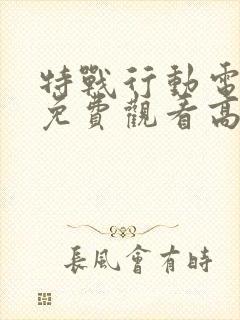 特戰行動電
免費觀看高
長風會有時